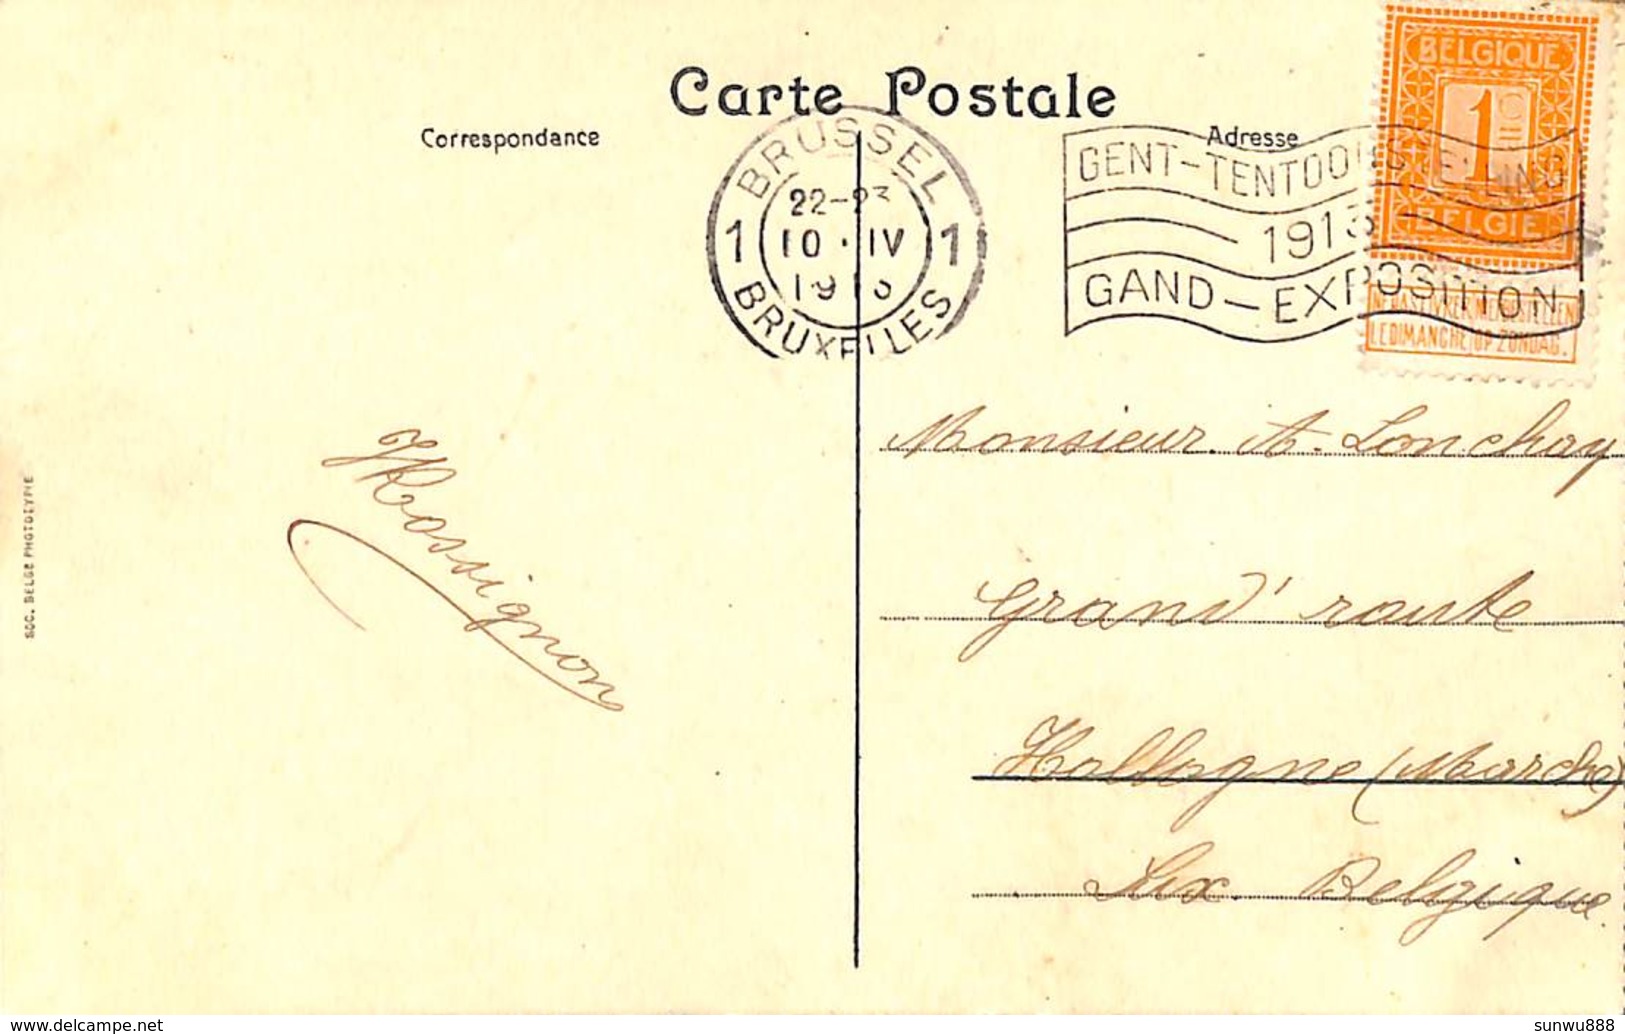 Carte Postale
Correspondance
Adresse
BRUSSEL
22-23
1 10·IV 1
1913
BRUXELLES
GENT-TENTOONSTELLING
1913
GAND-EXPOSITION
BELGIQUE
1c
BELGIË
NIET BESTELLEN
NE PAS LIVRER
LE DIMANCHE OP ZONDAG.
Rossignon
Monsieur A. Lonchay
Grand' route
Hollogne (Marche)
Lux. Belgique.
SOC. BELGE PHOTOTYPIE
delcampe.net
sunwu888